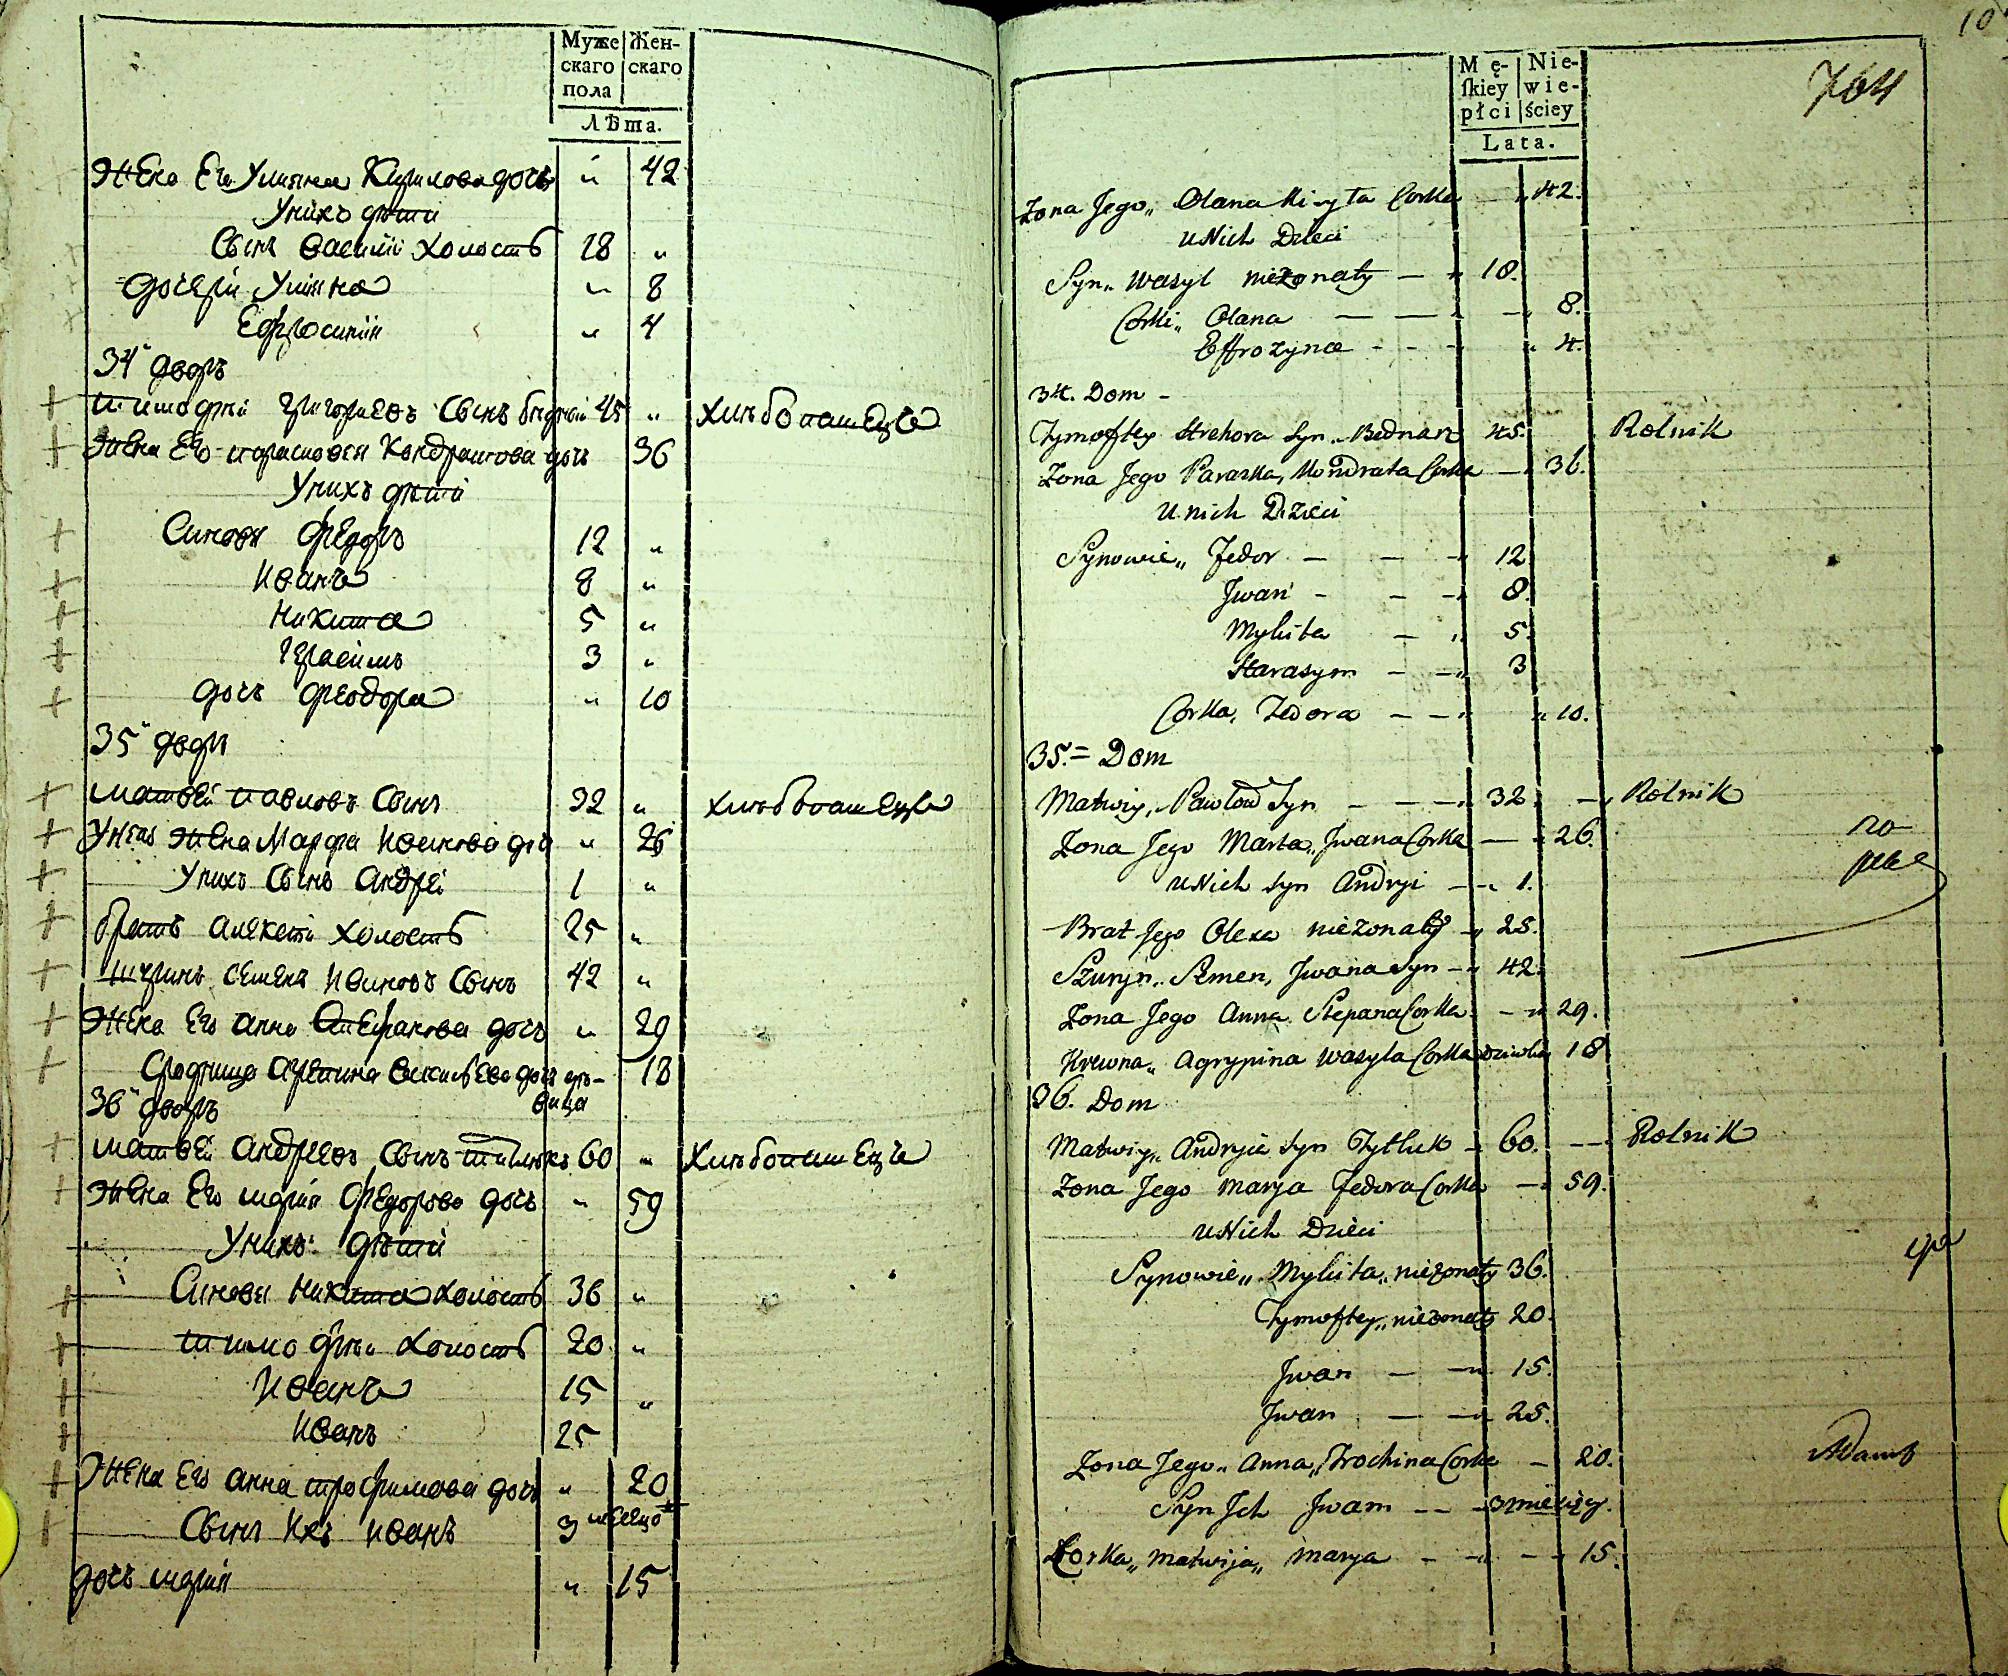 Муже Жен-
скаго скаго
пола
Лѣта.
Жена Его Улияна Кирилова дочь " 42
У нихъ дѣти
Сынъ Василій Холостъ 18 "
Дочери Улияна " 8
Ефросинія " 4
34" дворъ
Тимофей Григорьевъ Сынъ бедный 45 " Хлѣбопашецъ
Жена Его парасковея Кондратова дочь 36
У нихъ дѣти
Синовя Федоръ 12 "
Иванъ 8 "
Никита 5 "
Герасимъ 3 "
дочъ Феодора " 10
35" дворъ
Матвей Павловъ Сынъ 32 " хлѣбопашецъ
У него жена Марфа Иванова доч " 26
У нихъ Сынъ Андрей 1 "
братъ Алексей холостъ 25 "
шуринъ Семенъ Ивановъ Сынъ 42 "
Жена Его Анна Степанова дочъ " 29
Сродница Агрепина Василева дочъ дѣ- 18
вица
36" дворъ
Матвей Андреевъ Сынъ Титлюкъ 60 " Хлѣбопашецъ
Жена Его Мария Федорова дочъ " 59
У нихъ дѣти
Синовя Никита холостъ 36 "
Тимофей Холостъ 20 "
Иванъ 15 "
Иванъ 25
Жена Его Анна трофимова дочъ " 20
Сынъ Ихъ Иванъ 3 месецо
дочъ Мария " 15
10
Mę- Nie-
ſkiey wie-
płci ściey
Lata.
764
Zona Jego„ Olana Kiryła Corka " 42.
u Nich Dzieci
Syn„ Wasyl nieżonaty — " 18.
Corki„ Olana — — — " 8.
Effrozyna - - - " 4.
34. Dom -
Tymoftey Hrehora Syn„ Bednarz 45. Rolnik
Zona Jego Paraska, Kondrata Corka — 36.
u nich Dzieci
Synowie„ Fedor — — — 12
Jwan - — — 8.
Mykita — " 5.
Harasym - — 3
Corka, Fedora — — " " 10.
35.= Dom
Matwiy„ Pawłow Syn — — — 32. — Rolnik
Zona Jego Marta„ Jwana Corka — " 26.
u Nich Syn Andryi — " 1.
Brat Jego Olexa nieżonaty — 25.
Szuryn„ Semen, Jwana Syn — 42.
Zona Jego Anna Stepana Corka — " 29.
Krewna„ Agrypina Wasyla Corka dziewka 18
36. Dom
Matwiy„ Andryia Syn Tytluk — 60. — Rolnik
Zona Jego Marya Fedora Corka — 59.
u Nich Dzieci
Synowie„ Mykita„ nieżonaty 36.
Tymoftey„ nieżonaty 20.
Jwan — — 15.
Jwan — — 25.
Zona Jego„ Anna„ Trochina Corka — 20.
Syn Jch Jwam — — 3 miesięcy.
Corka„ Matwija„ Marya — — — 15.